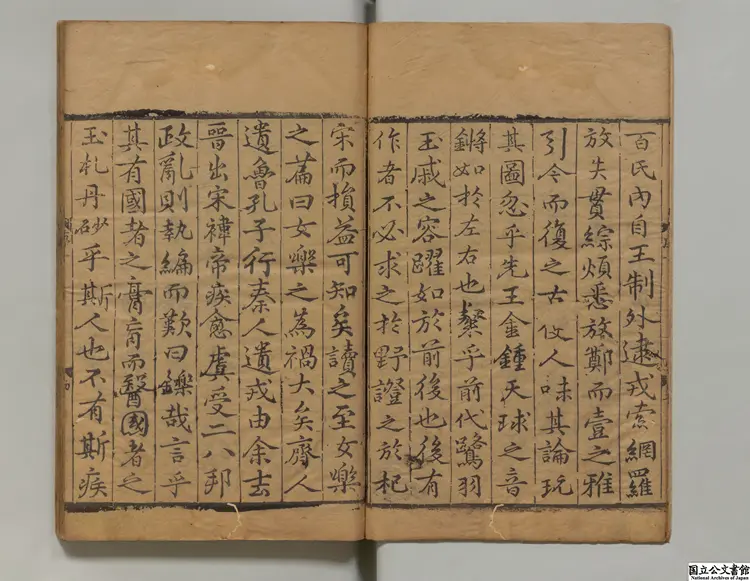 百民內自王制外逮戎索網羅
放失貫綜煩悉放鄭而壹之雅
引今而復之古使人味其論玩
其圖忽乎先王金鍾天球之音
鏘如於左右也粲乎前代鷺羽
玉戚之容躍如於前後也後有
作者不必求之於野證之於杞
宋而損益可知矣讀之至女樂
之萹曰女樂之為禍大矣齊人
遺魯孔子行秦人遺戎由余去
晉出宋褘帝疾愈虞受二八邦
政亂則執編而歎曰鑠哉言乎
其有國者之膏肓而醫國者之
玉札丹砂乎斯人也不有斯疾
国立公文書館
National Archives of Japan